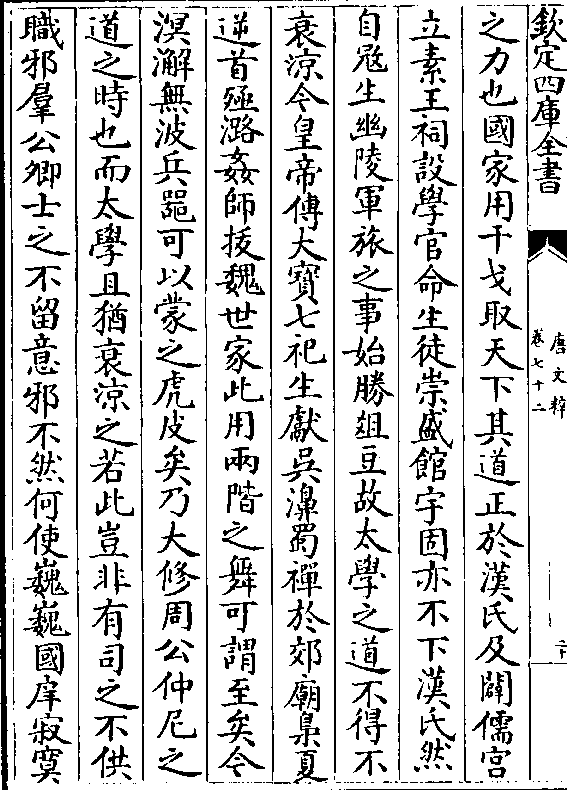 欽定四庫全書
唐文粹
卷七十二
之力也國家用干戈取天下其道正於漢氏及闢儒宫
立素王祠設學官命生徒崇盛館宇固亦不下漢氏然
自冦生幽陵軍旅之事始勝俎豆故太學之道不得不
衰涼令皇帝傳大寶七祀生獻吳濞蜀禪於郊廟梟夏
逆首殛潞姦師抜魏世家此用兩階之舞可謂至矣今
溟澥無波兵噐可以蒙之虎皮矣乃大修周公仲尼之
道之時也而太學且猶衰涼之若此豈非有司之不供
職邪羣公卿士之不留意邪不然何使巍巍國庠寂寞